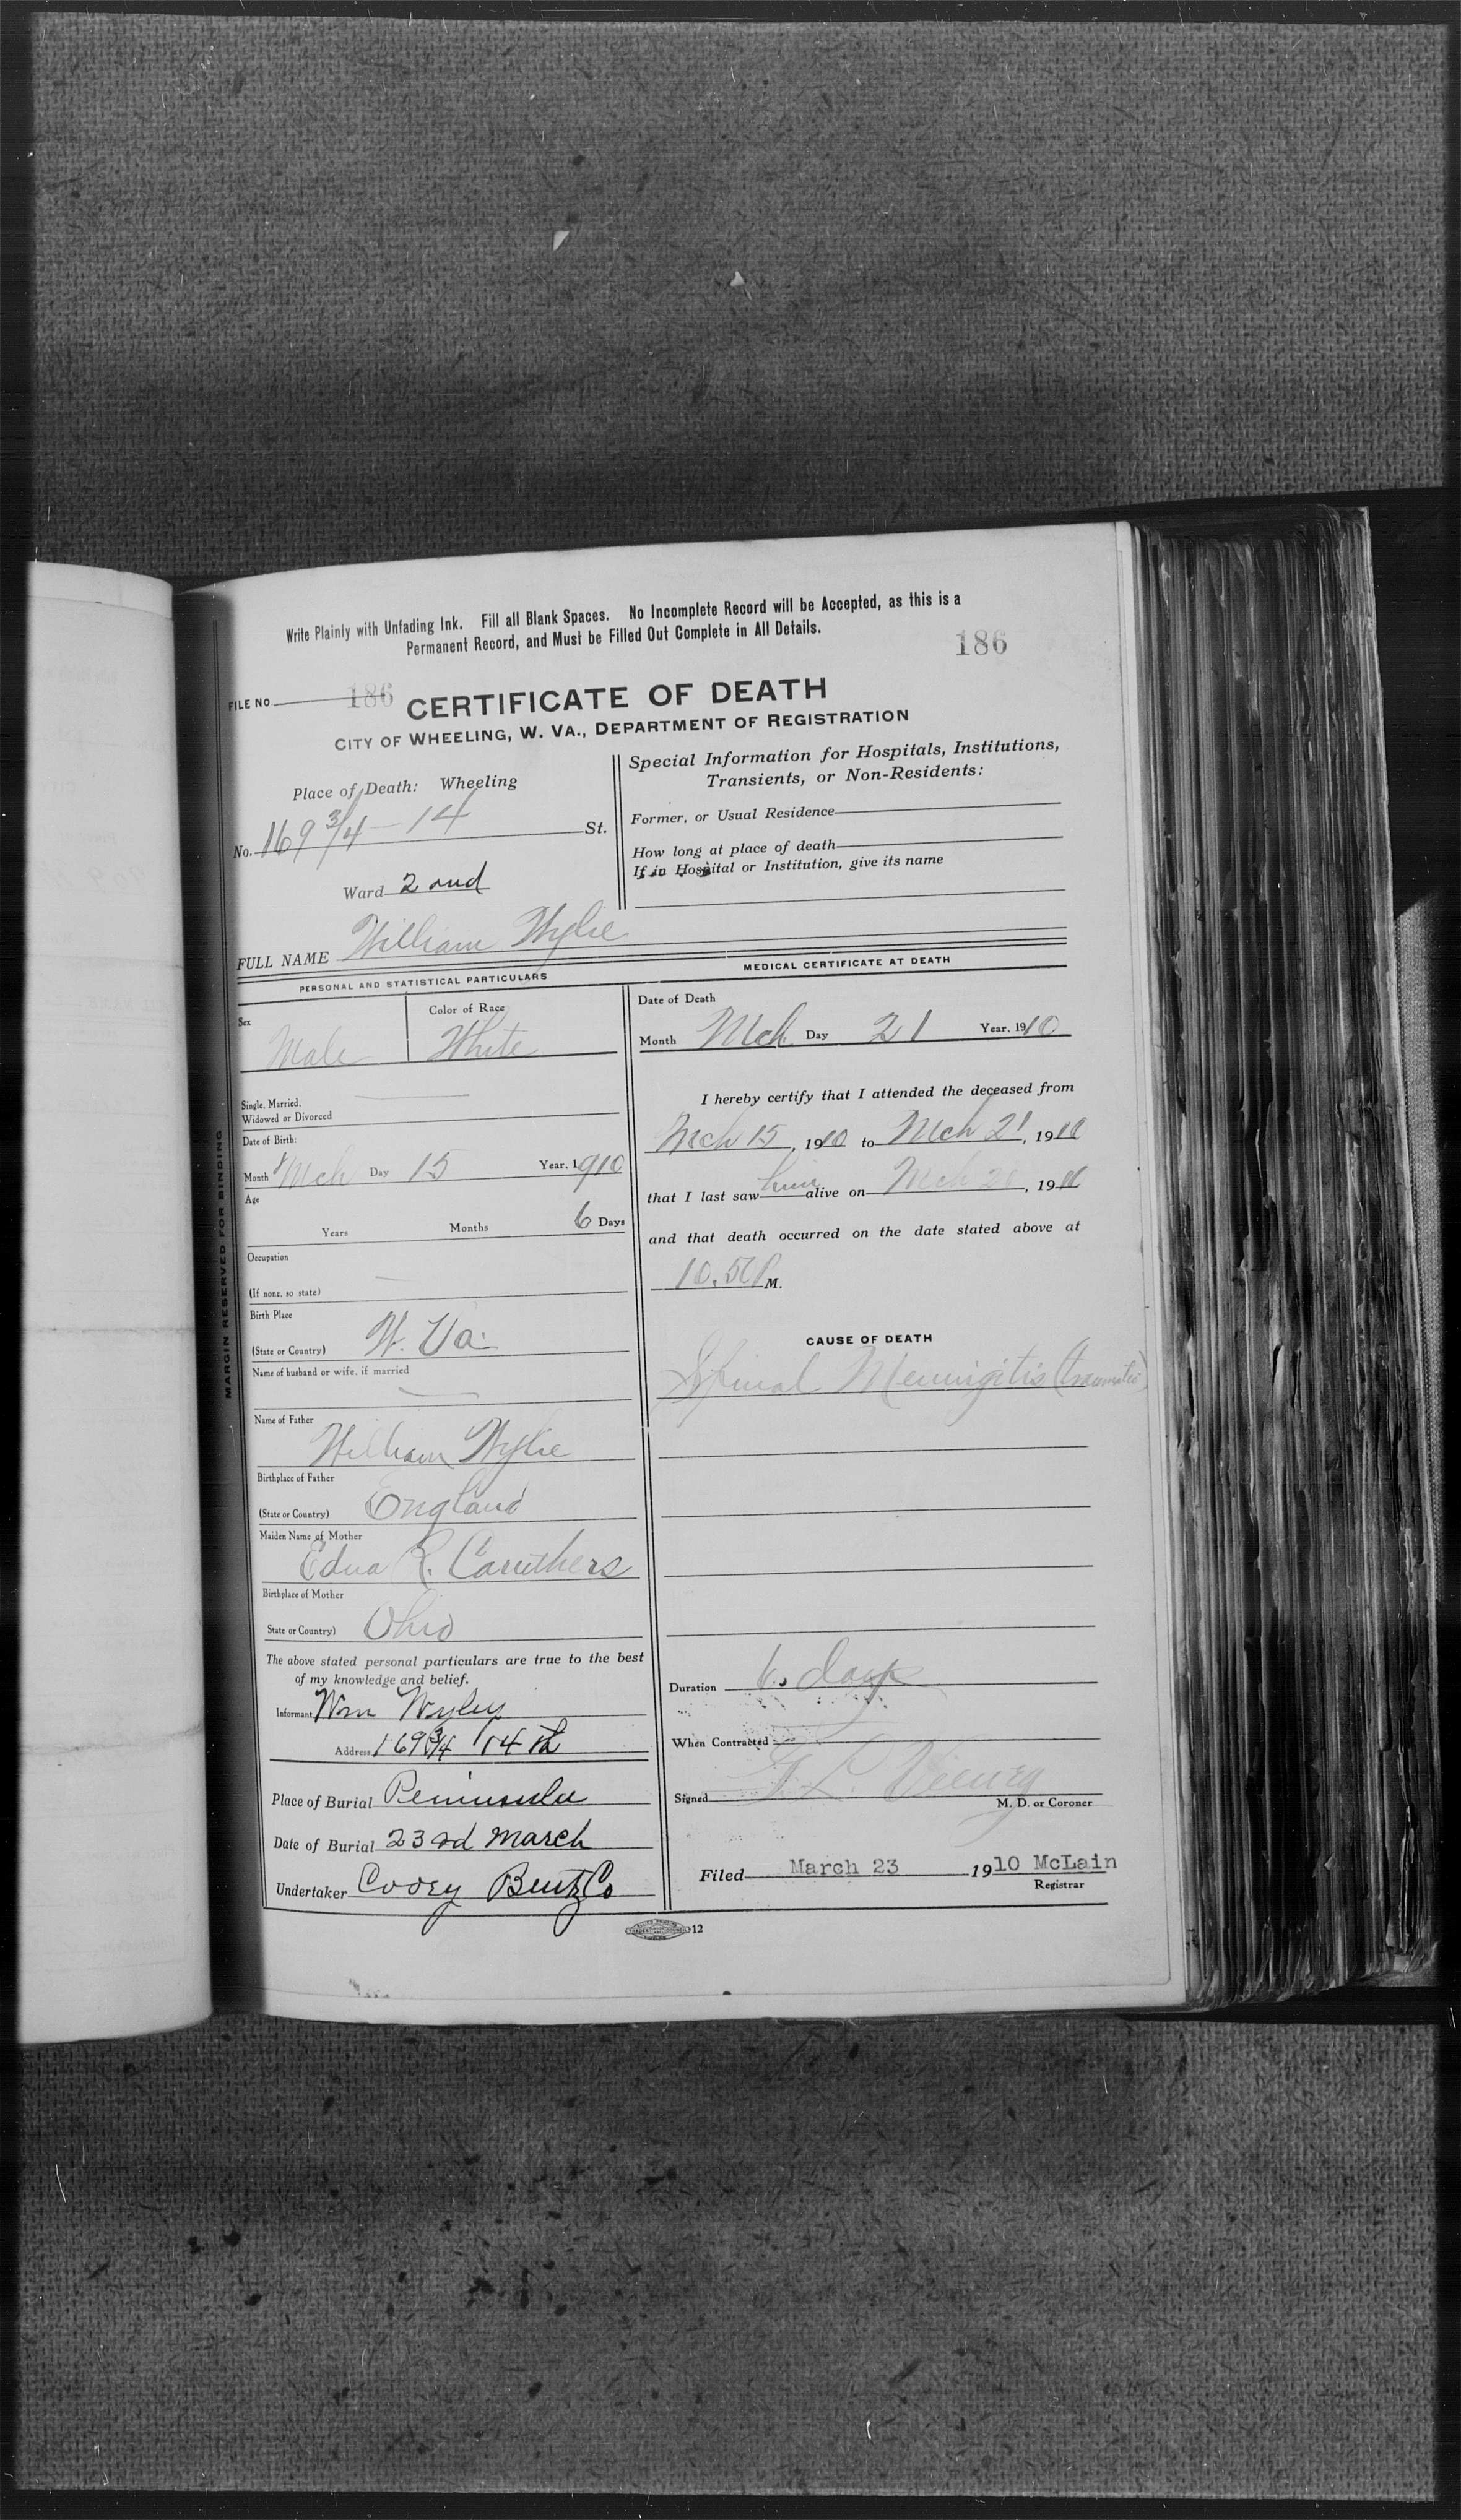 Write Plainly with Unfading Ink. Fill all Blank Spaces. No Incomplete Record will be Accepted, as this is a
Permanent Record, and Must be Filled Out Complete in All Details.
186
FILE NO 186
CERTIFICATE OF DEATH
CITY OF WHEELING, W. VA., DEPARTMENT OF REGISTRATION
Place of Death: Wheeling
No. 169 3/4 - 14 St.
Ward 2 ond
Special Information for Hospitals, Institutions,
Transients, or Non-Residents:
Former, or Usual Residence
How long at place of death
If in Hospital or Institution, give its name
FULL NAME William Wylie
MARGIN RESERVED FOR BINDING
PERSONAL AND STATISTICAL PARTICULARS
Sex
Male
Color of Race
White
Single, Married,
Widowed or Divorced
Date of Birth:
Month Mch Day 15 Year. 1910
Age
Years Months 6 Days
Occupation
(If none, so state)
Birth Place
(State or Country) W. Va.
Name of husband or wife, if married
Name of Father
William Wylie
Birthplace of Father
(State or Country) England
Maiden Name of Mother
Edna R. Caruthers
Birthplace of Mother
State or Country) Ohio
The above stated personal particulars are true to the best
of my knowledge and belief.
Informant Wm Wyley
Address 169 3/4 14th
Place of Burial Peninsula
Date of Burial 23rd March
Undertaker Cooey Bentz Co
MEDICAL CERTIFICATE AT DEATH
Date of Death
Month Mch Day 21 Year. 1910
I hereby certify that I attended the deceased from
Mch 15, 1910 to Mch 21, 1910
that I last saw him alive on Mch 20, 1910
and that death occurred on the date stated above at
10.50 P M.
CAUSE OF DEATH
Spinal Meningitis (traumatic)
Duration 6. days
When Contracted
Signed F. L.
M. D. or Coroner
Filed March 23 1910 McLain
Registrar
12